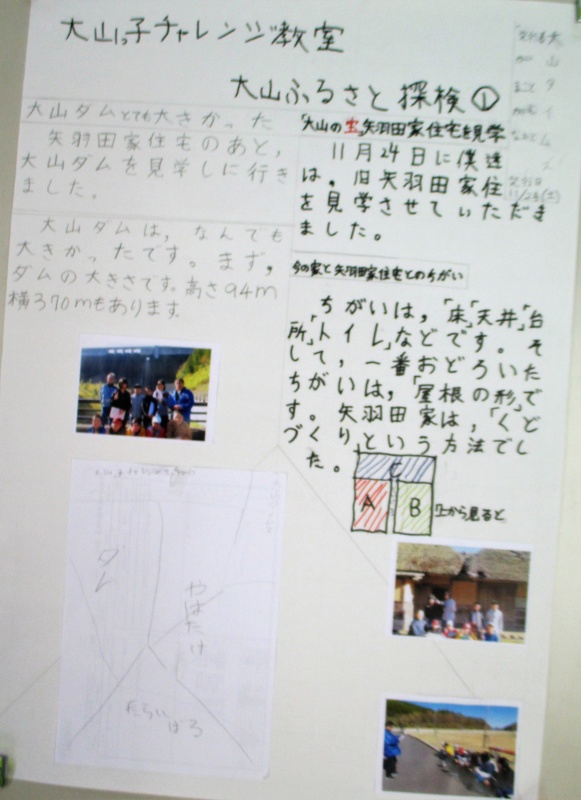 大山っ子チャレンジ教室
大山ふるさと探検①
「大山の宝」矢羽田家住宅を見学
11月24日に僕達
は、旧矢羽田家住宅
を見学させていただき
ました。
今の家と矢羽田家住宅とのちがい
ちがいは、「床」「天井」「台
所」「トイレ」などです。そ
して、一番おどろいた
ちがいは、「屋根の形」で
す。矢羽田家は、「くど
づくり」という方法でし
た。
C
A
B
上から見ると
大山ダムとても大きかった
矢羽田家住宅のあと、
大山ダムを見学しに行き
ました。
大山ダムは、なんでも
大きかったです。まず、
ダムの大きさです。高さ94m
横370mもあります。
ダム
やはたけ